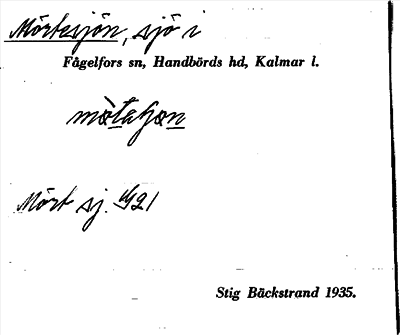 Mörtesjön, sjö i
Fågelfors sn, Handbörds hd, Kalmar l.
Mört sj.
Stig Bäckstrand 1935.